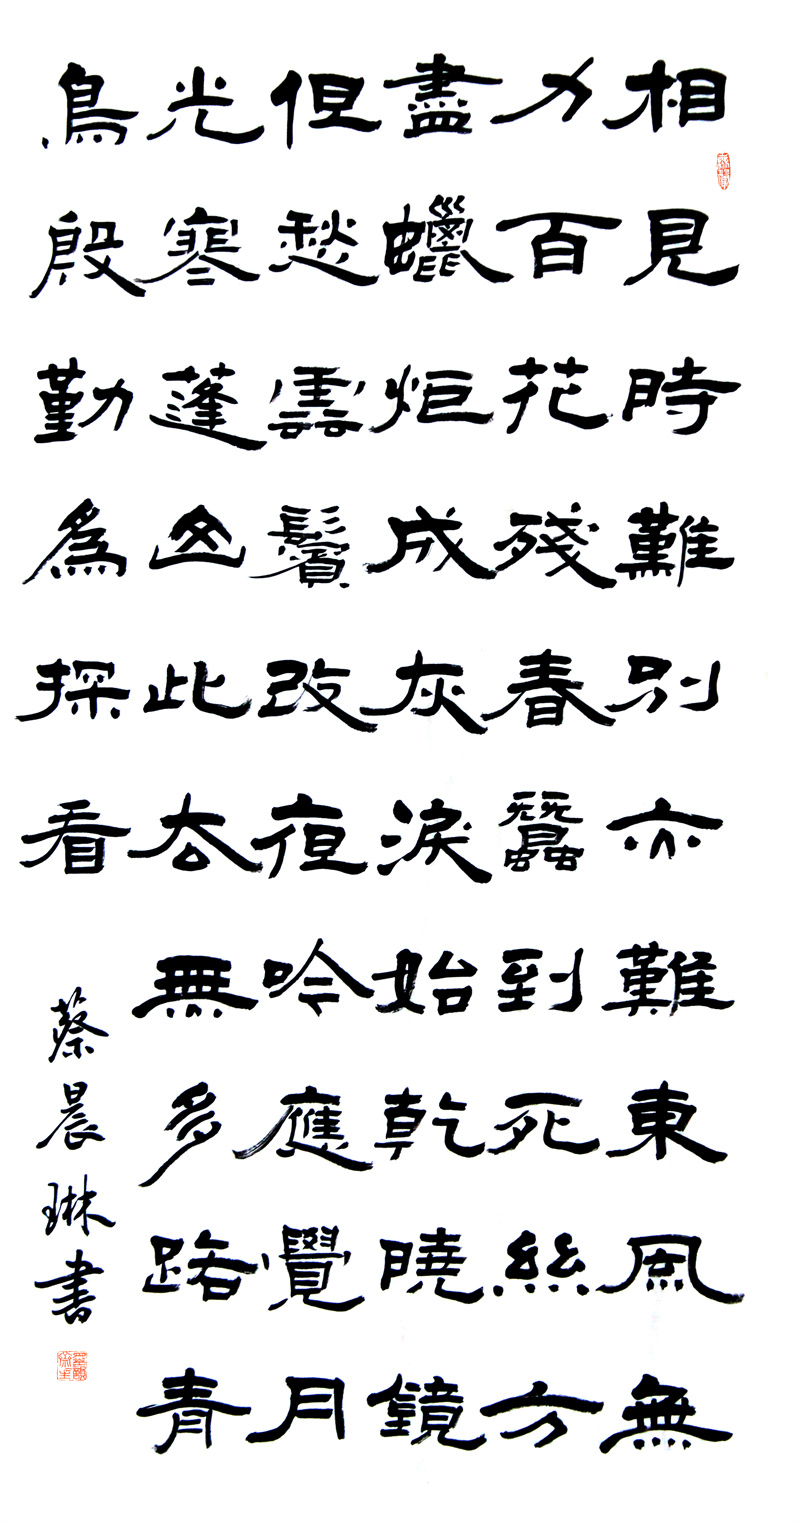 相見時難別亦難東風無
力百花殘春蠶到死絲方
盡蠟炬成灰淚始乾曉鏡
但愁雲鬢改夜吟應覺月
光寒蓬山此去無多路青
鳥殷勤為探看
蔡晨琳書